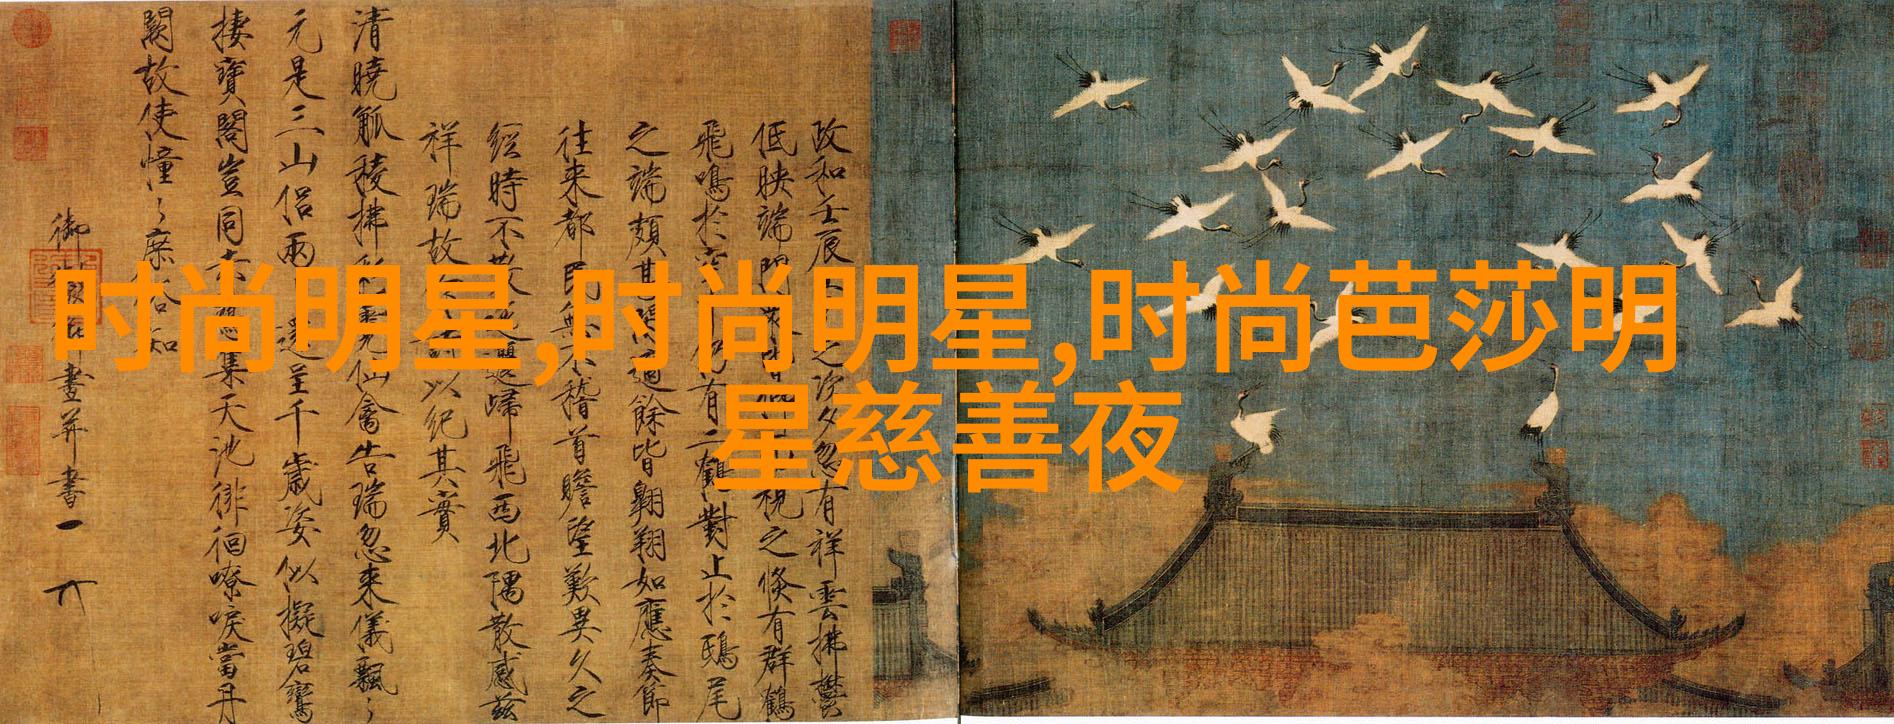 时尚明星,时尚明星,时尚芭莎明
星慈善夜
政和壬辰之次夕忽有祥雲拂鬱
低映端門視之倏有群鶴
飛鳴於空仍有二鶴對止於鴟尾
之端頗甚閑適餘皆翱翔如應奏節
往來都民無不稽首瞻望歎異久之
經時不散迤邐歸飛西北隅散感茲
祥瑞故以紀其實
清曉觚稜拂彩霓仙禽告瑞忽來儀飄〻
元是三山侶兩還呈千歲姿似擬碧鸞
棲寶閣豈同集天池徘徊嘹唳當丹
闕故使憧〻庶俗知
御製御畫并書